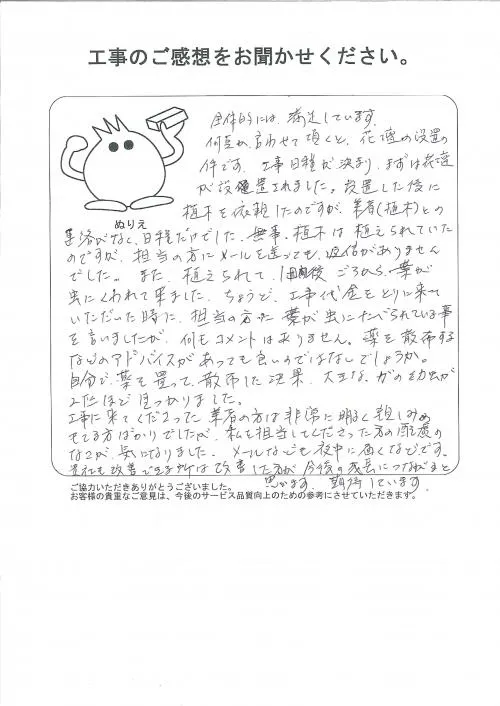 工事のご感想をお聞かせください。
全体的には、満足しています。
何点か、言わせて頂くと、花壇の設置の
件です。工事日程が決まり、まずは花壇
が設置されました。設置した後に
植木を依頼したのですが、業者(植木)との
ぬりえ
連絡がなく、日程だけでした。無事、植木は植えられていた
のですが、担当の方にメールを送っても、返信がありません
でした。また、植えられて、1週間後ごろから、葉が
虫にくわれて来ました。ちょうど、工事代金をとりに来て
いただいた時に、担当の方に葉が虫にたべられている事
を言いましたが、何もコメントはありません。薬を散布する
などのアドバイスがあっても良いのではないでしょうか。
自分で、薬を買って、散布した結果、大きな、がの幼虫が
2匹ほど見つかりました。
工事に来てくださった業者の方は非常に明るく親しみの
もてる方ばかりでしたが、私を担当してくださった方の配慮の
なさが、気になりました。メールなども夜中に届くなどです。
も改善できる所は改善した方が今後の成長につながると
思います。期待しています。
ご協力いただきありがとうございました。
お客様の貴重なご意見は、今後のサービス品質向上のための参考にさせていただきます。